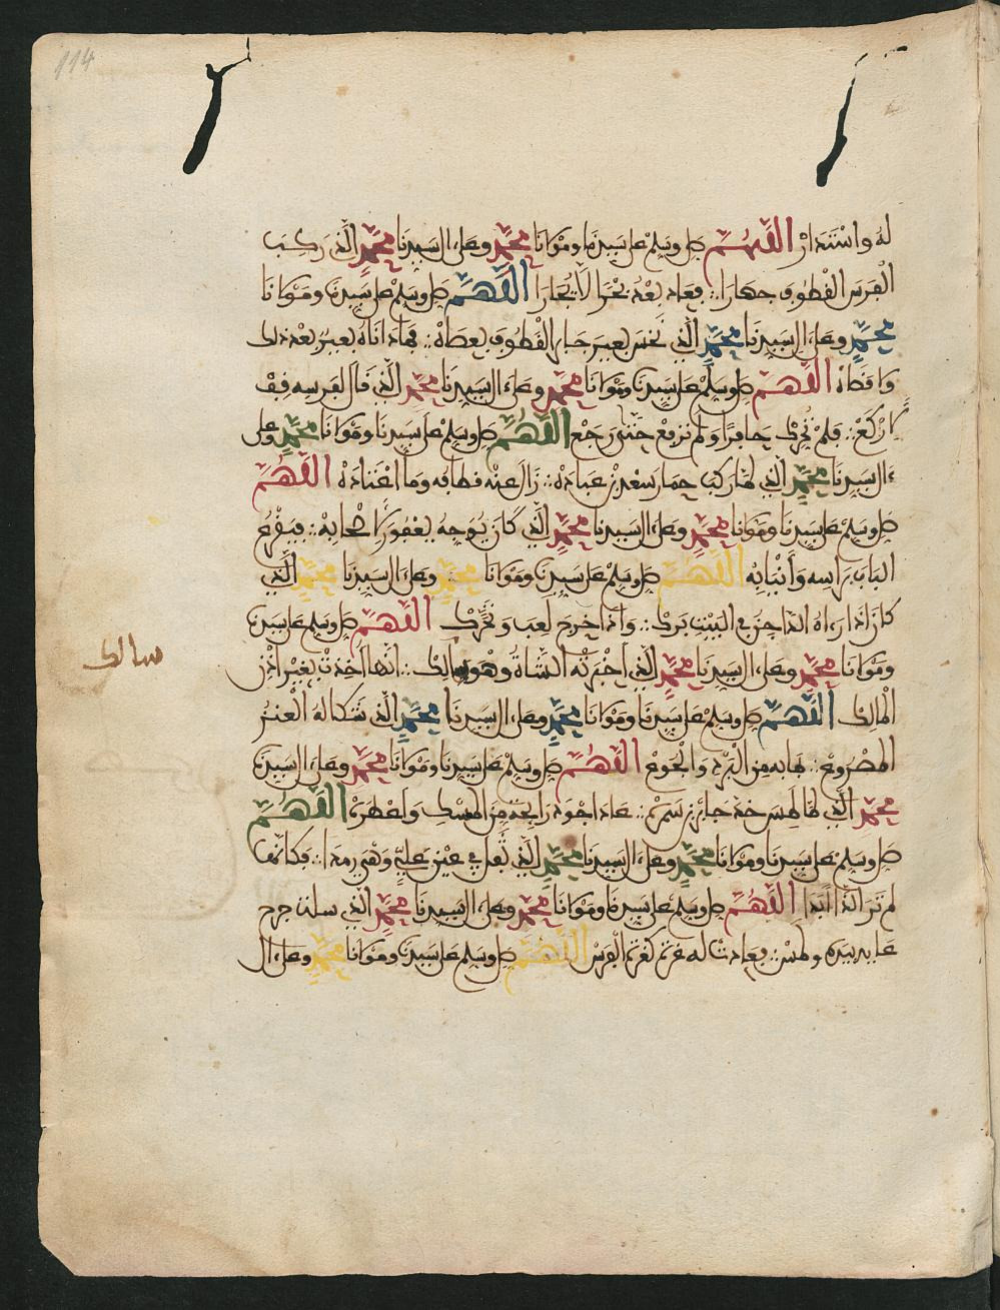 114
لَهُ وَاسْتَدَارْ اللَّهُمَّ صل وسلم على سيدنا ومولانا محمد وعلى ءال سيدنا محمد الذي ركب
الفرس القطوف حمارا فعاد بعد بحرا لا يجارا اللهم صل وسلم على سيدنا ومولانا
محمد وعلى ءال سيدنا محمد الذي نخس بعير جابر القطوف بعصاه فما داناه بعير بعد ذلك
اللهم صل وسلم على سيدنا ومولانا محمد وعلى ءال سيدنا محمد الذي قال لفرسه قف
فلم يحرك حافرا ولم يرفع حتى رجع اللهم صل وسلم على سيدنا ومولانا محمد وعلى
ءال سيدنا محمد الذي لما ركب حمار سعد بن عبادة زال عنه قطافه وما اعتاده اللهم
صل وسلم على سيدنا ومولانا محمد وعلى ءال سيدنا محمد الذي كان يوجه يعفورا لأصحابه فيقرع
الباب براسه وأنيابه اللهم صل وسلم على سيدنا ومولانا محمد وعلى ءال سيدنا محمد الذي
كان اذا رءاه الداجن في البيت برك واذا خرج لعب وتحرك اللهم صل وسلم على سيدنا
ومولانا محمد وعلى ءال سيدنا محمد الذي أخبرته الشاة وهو سالك انها أخذت بغير اذن
سالك
المالك اللهم صل وسلم على سيدنا ومولانا محمد وعلى ءال سيدنا محمد الذي شكا له العنز
المصروع مابه من البرد والجوع اللهم صل وسلم على سيدنا ومولانا محمد وعلى ءال سيدنا
محمد الذي لما لمس خد جابر بن سمرة عاد اجود رايحة من المسك واعطر اللهم
صل وسلم على سيدنا ومولانا محمد وعلى ءال سيدنا محمد الذي تفل في عين علي وهي رمدا فكأنها
لم تر الدا أبدا اللهم صل وسلم على سيدنا ومولانا محمد وعلى ءال سيدنا محمد الذي سلت جرح
عايد بيده ولمس فعادت له غرة كغرة الفرس اللهم صل وسلم على سيدنا ومولانا محمد وعلى ءال